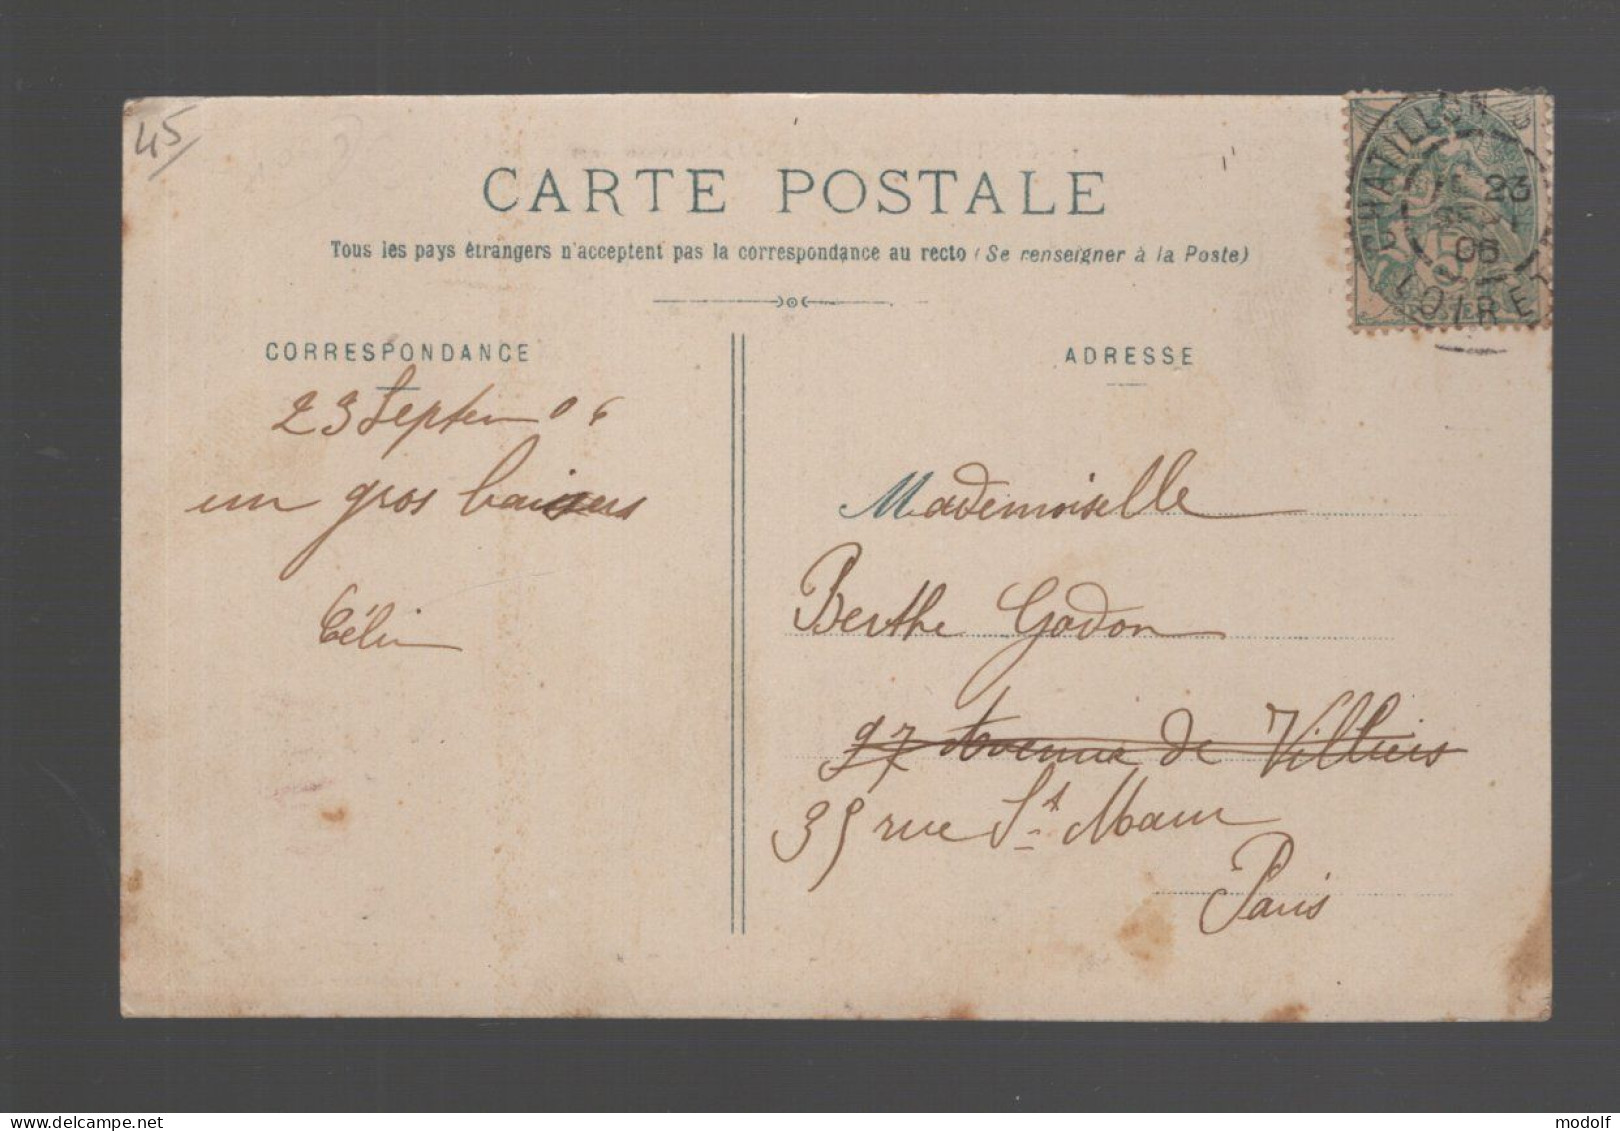 45
CARTE POSTALE
Tous les pays étrangers n'acceptent pas la correspondance au recto (Se renseigner à la Poste)
CORRESPONDANCE
23 Septem 06
un gros baisers
Célin
ADRESSE
Mademoiselle
Berthe Godon
97 Avenue de Villiers
35 rue St Maur
Paris
CHATILLON S
23
SEPT
06
LOIRET
5
delcampe.net
modolf